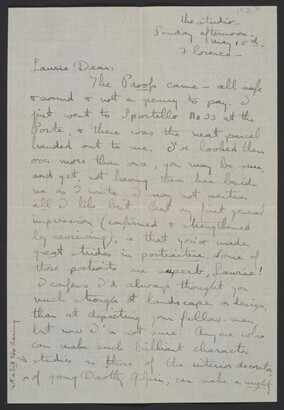 The Studio -
Sunday afternoon -
May 15th -
Florence -
Laurie Dear:
The Proofs came - all safe
& sound & not a penny to pay. I
just went to Sportello No 33 at the
Posta, & there was the neat parcel
handed out to me. I've looked them
over more than once, you may be sure,
and yet, not having them here beside
me as I write I may not mention
all I like best. But my first general
impression (confirmed & strengthened
by reviewing), is that you've made
great strides in portraiture. Some of
those portraits are superb, Laurie!
I confess I'd always thought you
much stronger at landscape or design,
than at depicting your fellow-man
but now I'm not sure. Anyone who
can make such brilliant character
studies as those of the interior decorator
& of young Dorothy, can make a